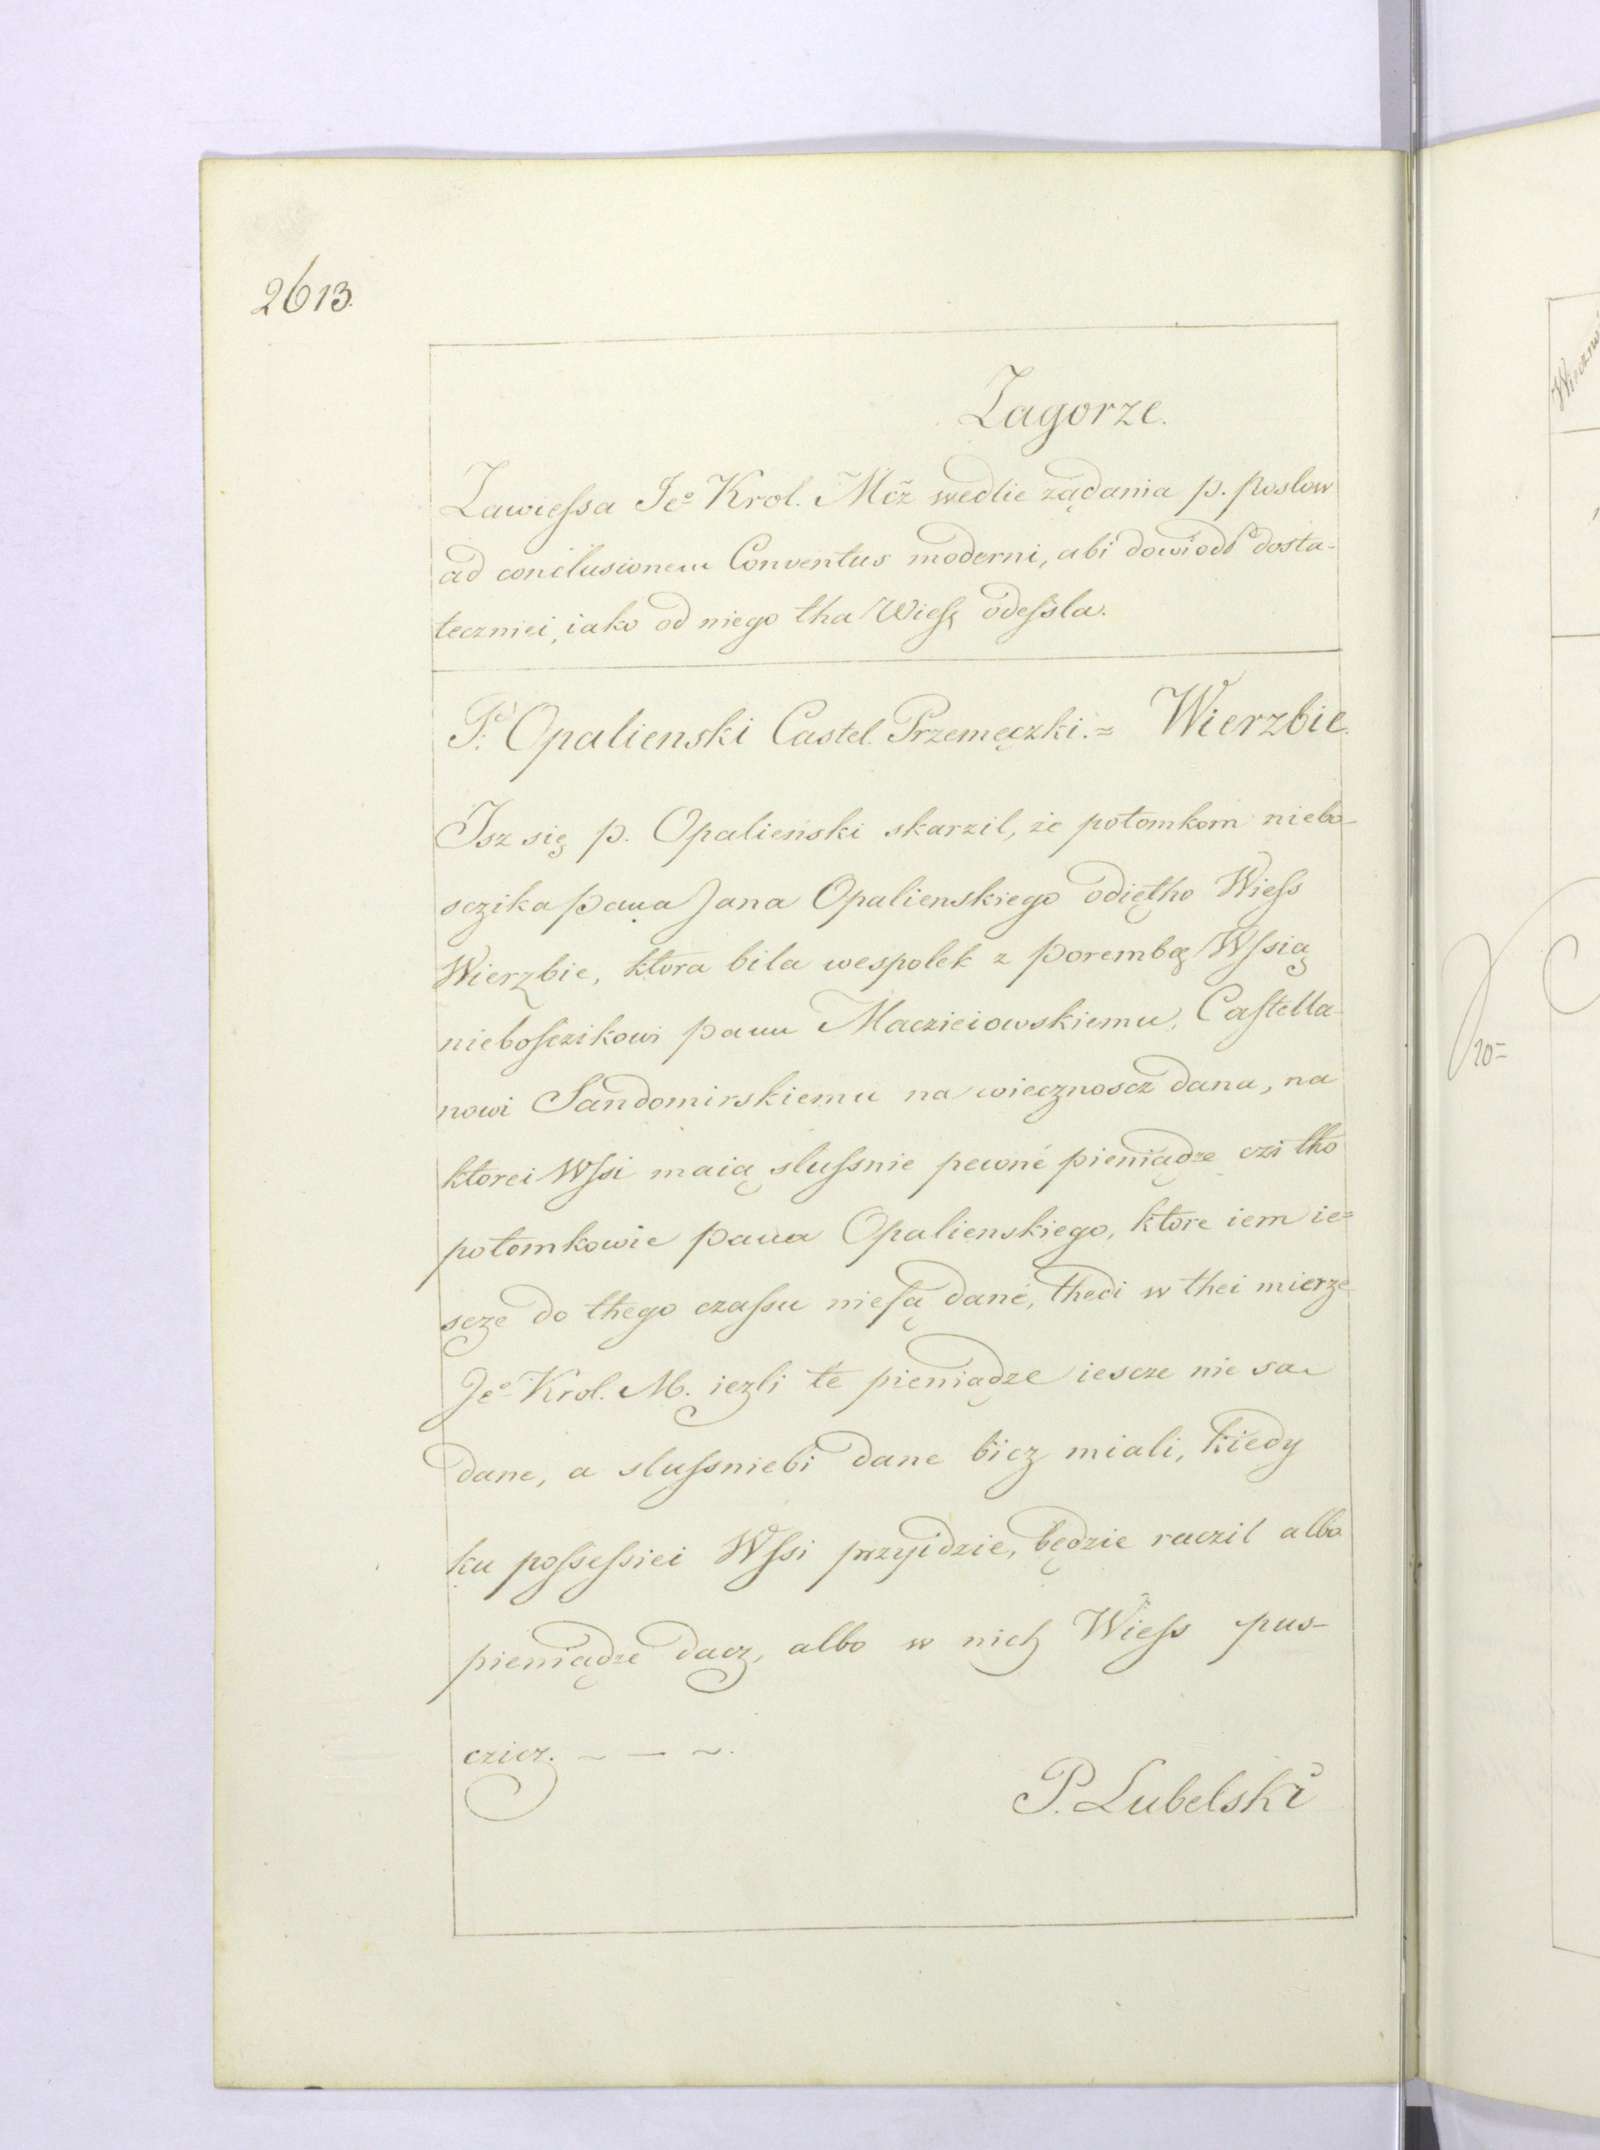 2613.
Zagorze.
Zawieſsa Jeº Krol. Mcz wedlie ządania p. posłow
ad conclusionem Conventus moderni, abi dowiodł dosta-
teczniei, iako od niego tha Wieſz odeſsla.
P. Opalienski Castel. Przemęczki.= Wierzbie.
Jsz się p. Opalieński skarzil, że potomkom niebo-
sczika pana Jana Opalienskiego odiętho Wieſs
Wierzbie, ktora bila wespolek z porembą Wſsią
nieboſczikowi panu Macziciowskiemu, Caſtella-
nowi Sandomirskiemu na wiecznoscz dana, na
ktorei Wſsi maią sluſsnie pewné pieniądze czi tho
potomkowie pana Opalienskiego, które iem ie=
scze do thego czaſsu nieſą dané, thedi w thei mierze
Jeº Krol. M. iezli te pieniądze iescze nie sa
dane, a sluſsniebi dane bicz miali, kiedy
ku poſseſsiei Wſsi przyidzie, będzie raczil albo
pieniądze dacz, albo w nich Wieſs pus-
czicz. ~ — ~.
P. Lubelski
Wieczni
20=